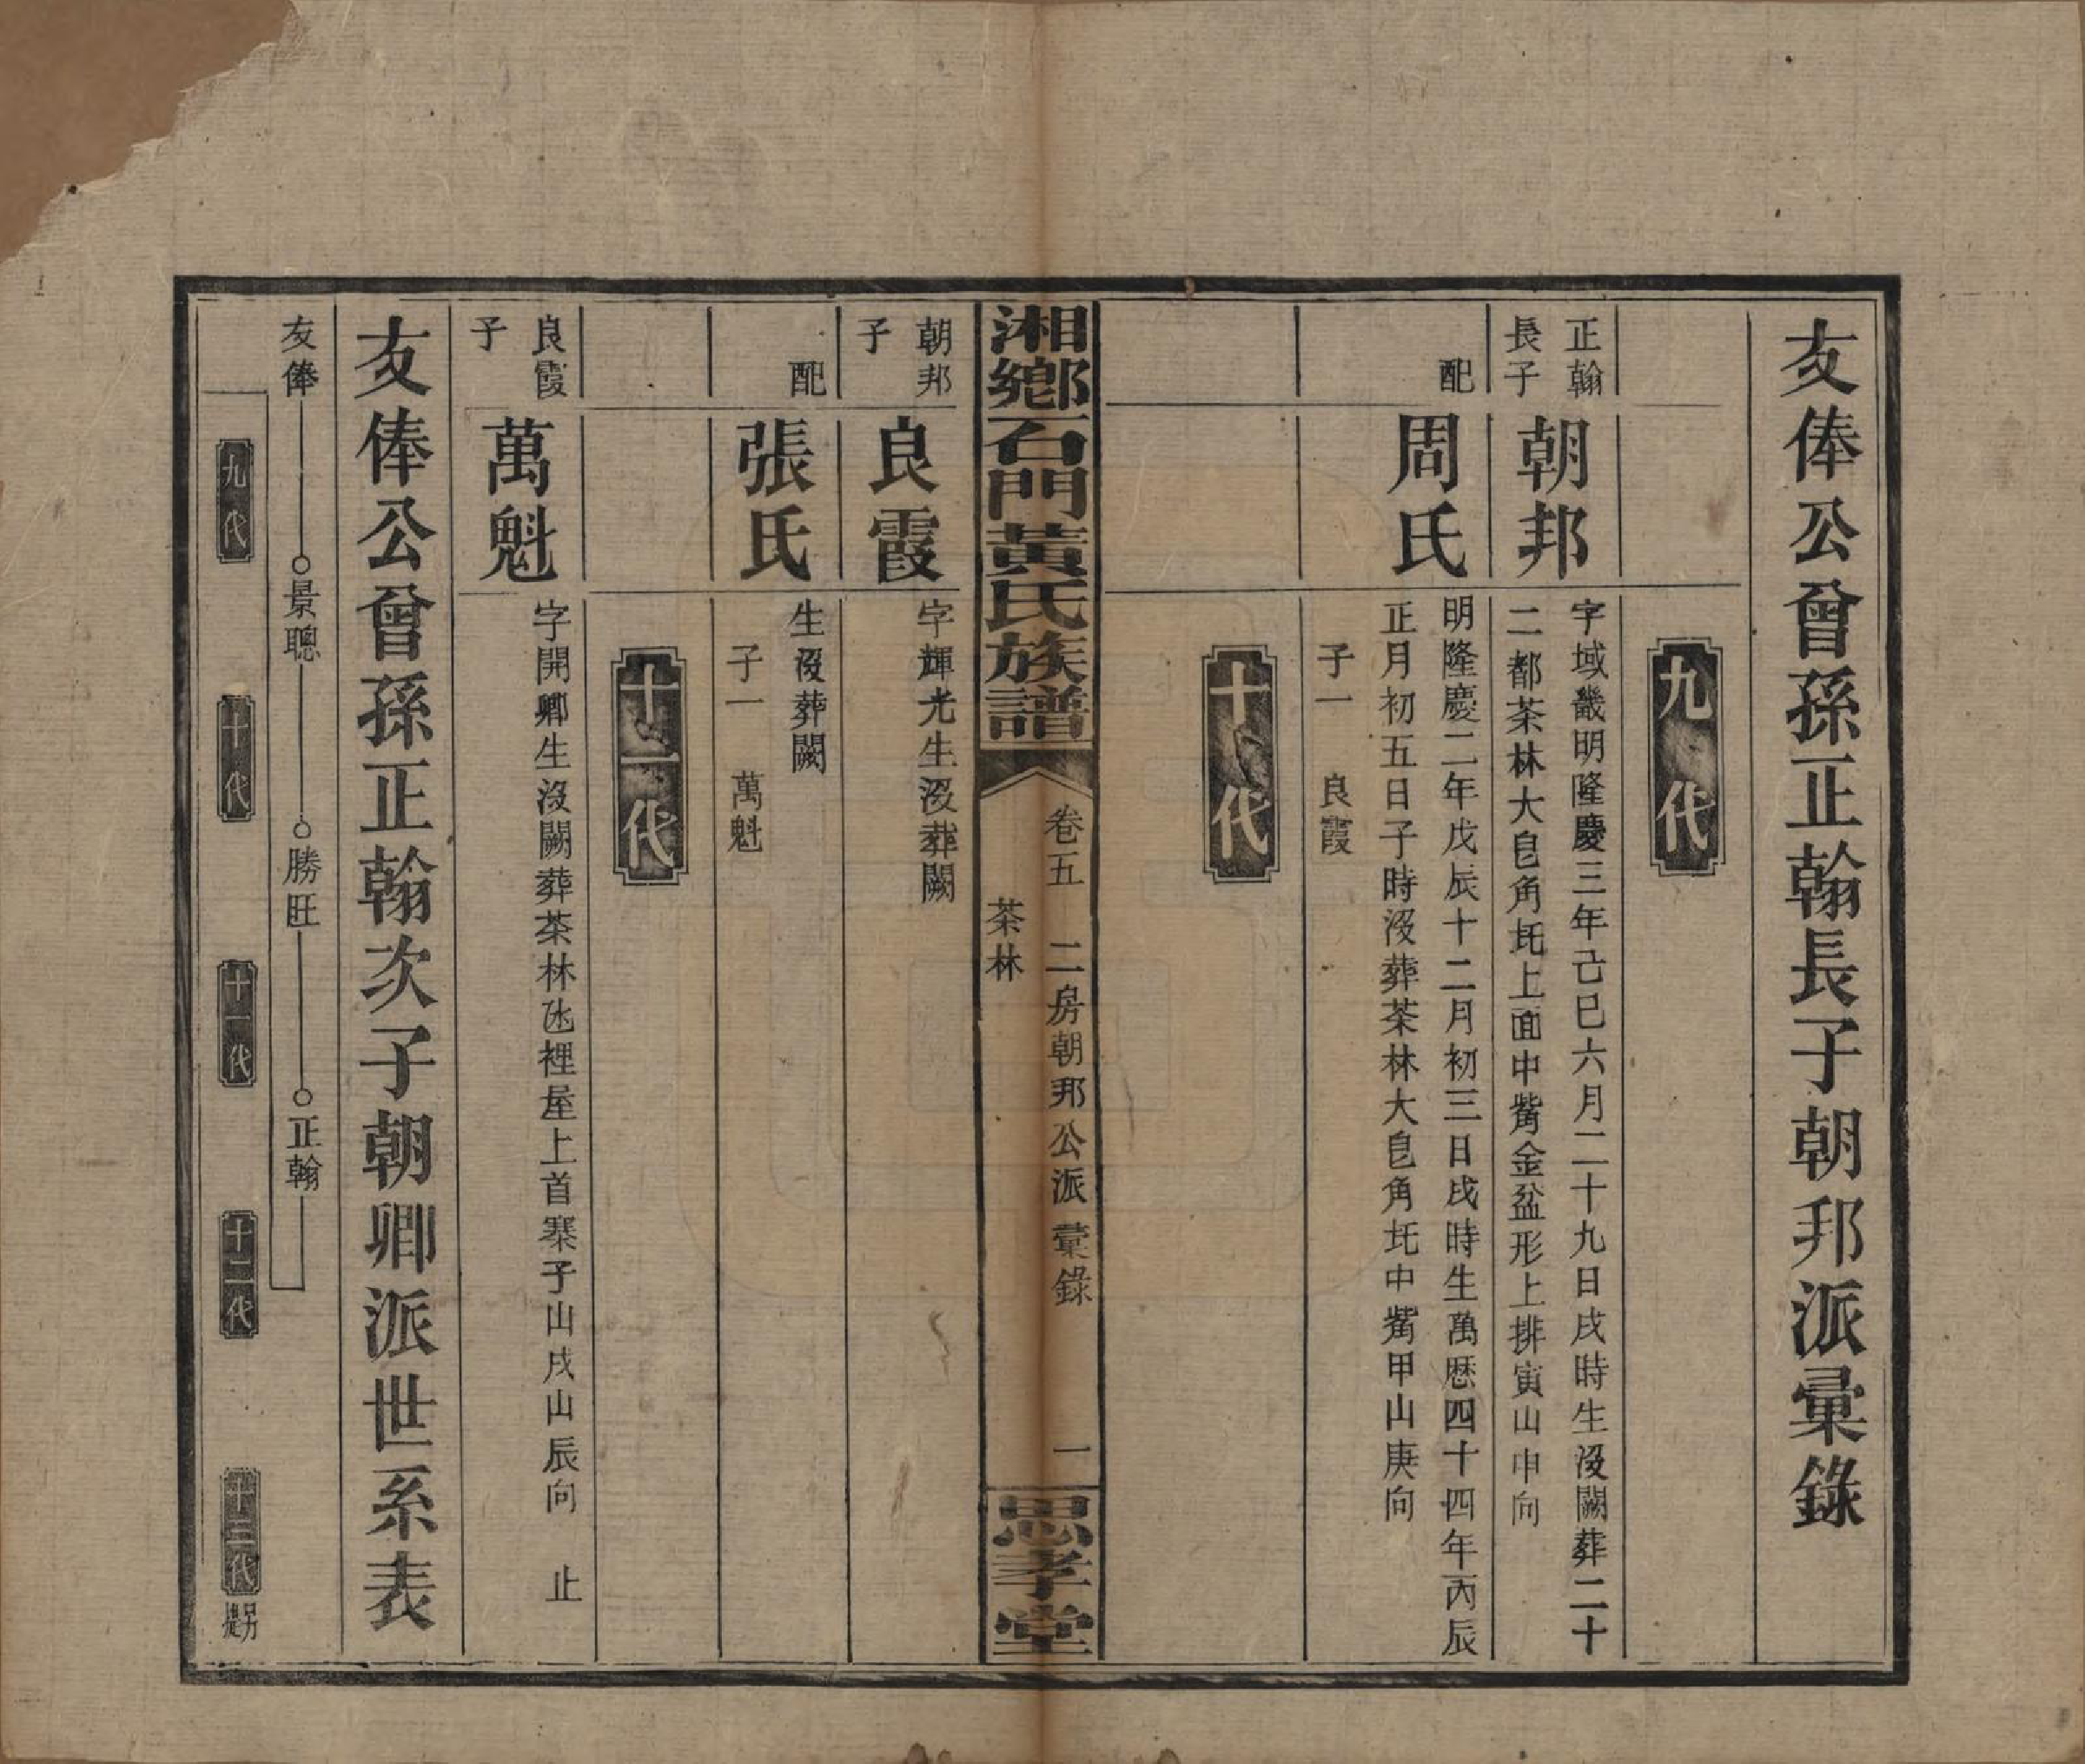 友俸公曾孫正翰長子朝邦派彙錄
九代
正翰
長子
朝邦
字域畿明隆慶三年己巳六月二十九日戌時生沒闕葬二十
二都茶林大皀角坉上面中觜金盆形上排寅山申向
配
周氏
明隆慶二年戊辰十二月初三日戌時生萬歷四十四年丙辰
正月初五日子時沒葬茶林大皀角坉中觜甲山庚向
子一 良霞
十代
湘鄉石門黃氏族譜
卷五 二房朝邦公派彙錄
茶林
一
思孝堂
朝邦
子
良霞
字輝光生沒葬闕
配
張氏
生沒葬闕
子一 萬魁
十一代
良霞
子
萬魁
字開卿生沒闕葬茶林氹裡屋上首寨子山戌山辰向 止
友俸公曾孫正翰次子朝卿派世系表
友俸 景聰 勝旺 正翰
九代 十代 十一代 十二代 十三代 另提